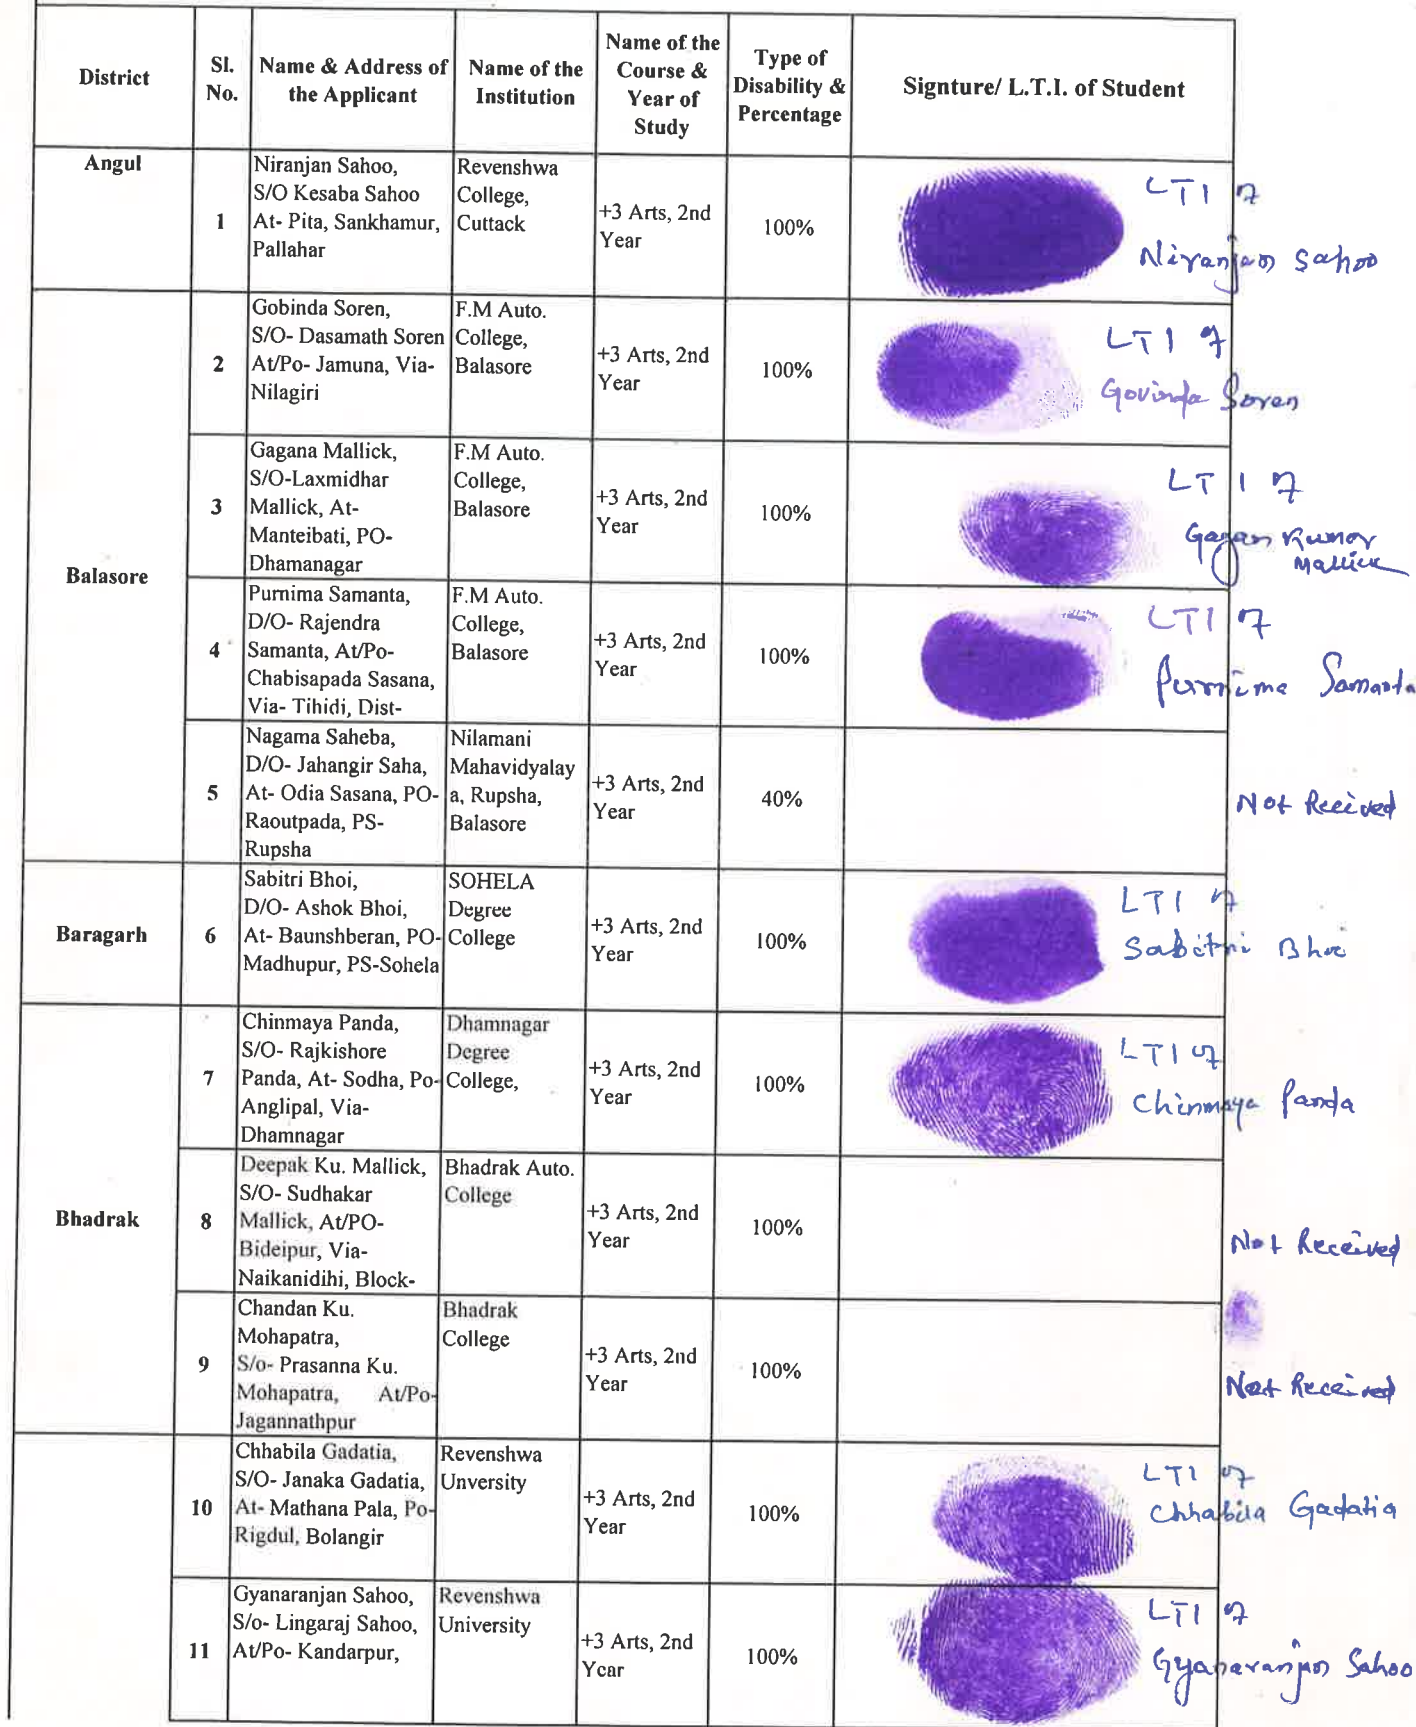 District
Sl.
No.
Name & Address of
the Applicant
Name of the
Institution
Name of the
Course &
Year of
Study
Type of
Disability &
Percentage
Signture/ L.T.I. of Student
Angul
1
Niranjan Sahoo,
S/O Kesaba Sahoo
At- Pita, Sankhamur,
Pallahar
Revenshwa
College,
Cuttack
+3 Arts, 2nd
Year
100%
LTI of
Niranjan Sahoo
Balasore
2
Gobinda Soren,
S/O- Dasamath Soren
At/Po- Jamuna, Via-
Nilagiri
F.M Auto.
College,
Balasore
+3 Arts, 2nd
Year
100%
LTI of
Govinda Soren
3
Gagana Mallick,
S/O-Laxmidhar
Mallick, At-
Manteibati, PO-
Dhamanagar
F.M Auto.
College,
Balasore
+3 Arts, 2nd
Year
100%
LTI of
Gagan Kumar
Mallick
4
Purnima Samanta,
D/O- Rajendra
Samanta, At/Po-
Chabisapada Sasana,
Via- Tihidi, Dist-
F.M Auto.
College,
Balasore
+3 Arts, 2nd
Year
100%
LTI of
Purnima Samanta
5
Nagama Saheba,
D/O- Jahangir Saha,
At- Odia Sasana, PO-
Raoutpada, PS-
Rupsha
Nilamani
Mahavidyalay
a, Rupsha,
Balasore
+3 Arts, 2nd
Year
40%
Not Received
Baragarh
6
Sabitri Bhoi,
D/O- Ashok Bhoi,
At- Baunshberan, PO-
Madhupur, PS-Sohela
SOHELA
Degree
College
+3 Arts, 2nd
Year
100%
LTI of
Sabitri Bhoi
Bhadrak
7
Chinmaya Panda,
S/O- Rajkishore
Panda, At- Sodha, Po-
Anglipal, Via-
Dhamnagar
Dhamnagar
Degree
College,
+3 Arts, 2nd
Year
100%
LTI of
Chinmaya Panda
8
Deepak Ku. Mallick,
S/O- Sudhakar
Mallick, At/PO-
Bideipur, Via-
Naikanidihi, Block-
Bhadrak Auto.
College
+3 Arts, 2nd
Year
100%
Not Received
9
Chandan Ku.
Mohapatra,
S/o- Prasanna Ku.
Mohapatra, At/Po-
Jagannathpur
Bhadrak
College
+3 Arts, 2nd
Year
100%
Not Received
10
Chhabila Gadatia,
S/O- Janaka Gadatia,
At- Mathana Pala, Po-
Rigdul, Bolangir
Revenshwa
Unversity
+3 Arts, 2nd
Year
100%
LTI of
Chhabila Gadatia
11
Gyanaranjan Sahoo,
S/o- Lingaraj Sahoo,
At/Po- Kandarpur,
Revenshwa
University
+3 Arts, 2nd
Year
100%
LTI of
Gyanaranjan Sahoo